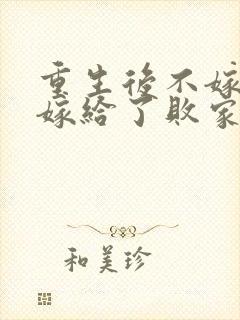 重生後不嫁
嫁給了敗家
和美珍